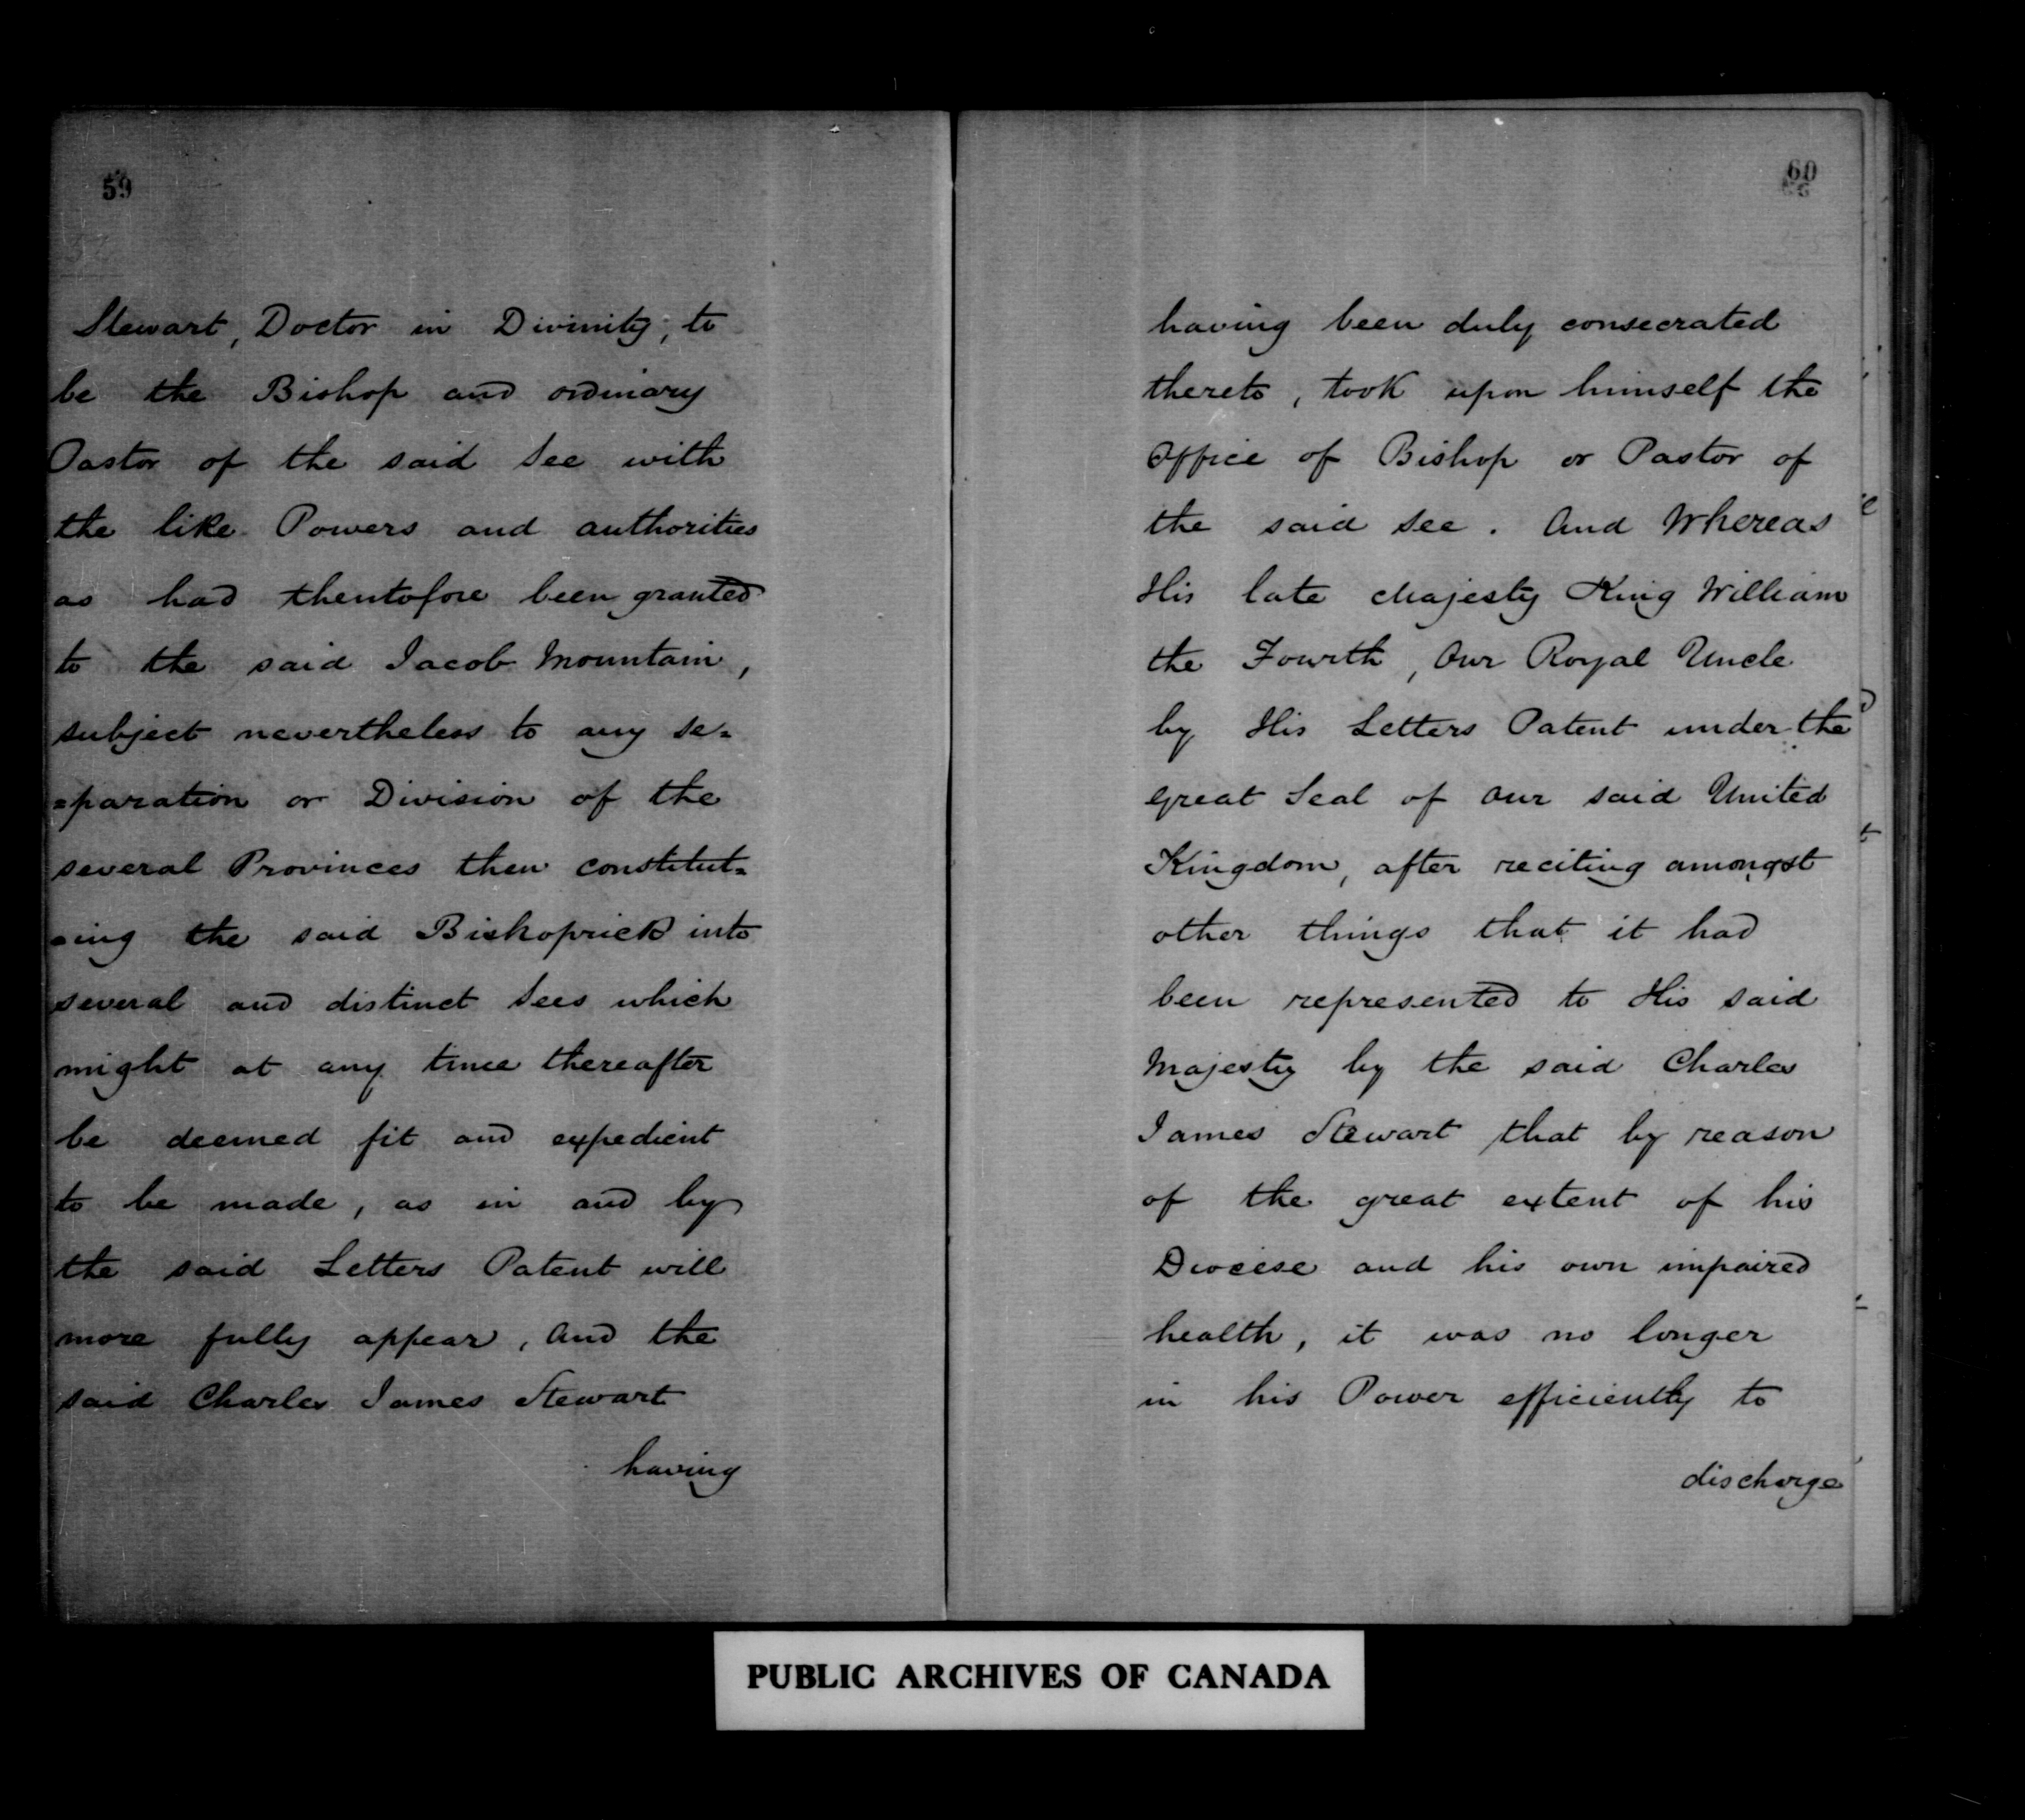 59
Stewart, Doctor in Divinity, to
be the Bishop and ordinary
Pastor of the said See with
the like Powers and authorities
as had thentofore been granted
to the said Jacob Mountain,
subject nevertheless to any se=
=paration or Division of the
several Provinces then constitut=
=ing the said Bishoprick into
several and distinct Sees which
might at any time thereafter
be deemed fit and expedient
to be made, as in and by
the said Letters Patent will
more fully appear, And the
said Charles James Stewart
having
60
having been duly consecrated
thereto, took upon himself the
Office of Bishop or Pastor of
the said See. And Whereas
His late Majesty King William
the Fourth, Our Royal Uncle
by His Letters Patent under the
Great Seal of Our said United
Kingdom, after reciting amongst
other things that it had
been represented to His said
Majesty by the said Charles
James Stewart that by reason
of the great extent of his
Diocese and his own impaired
health, it was no longer
in his Power efficiently to
discharge
PUBLIC ARCHIVES OF CANADA